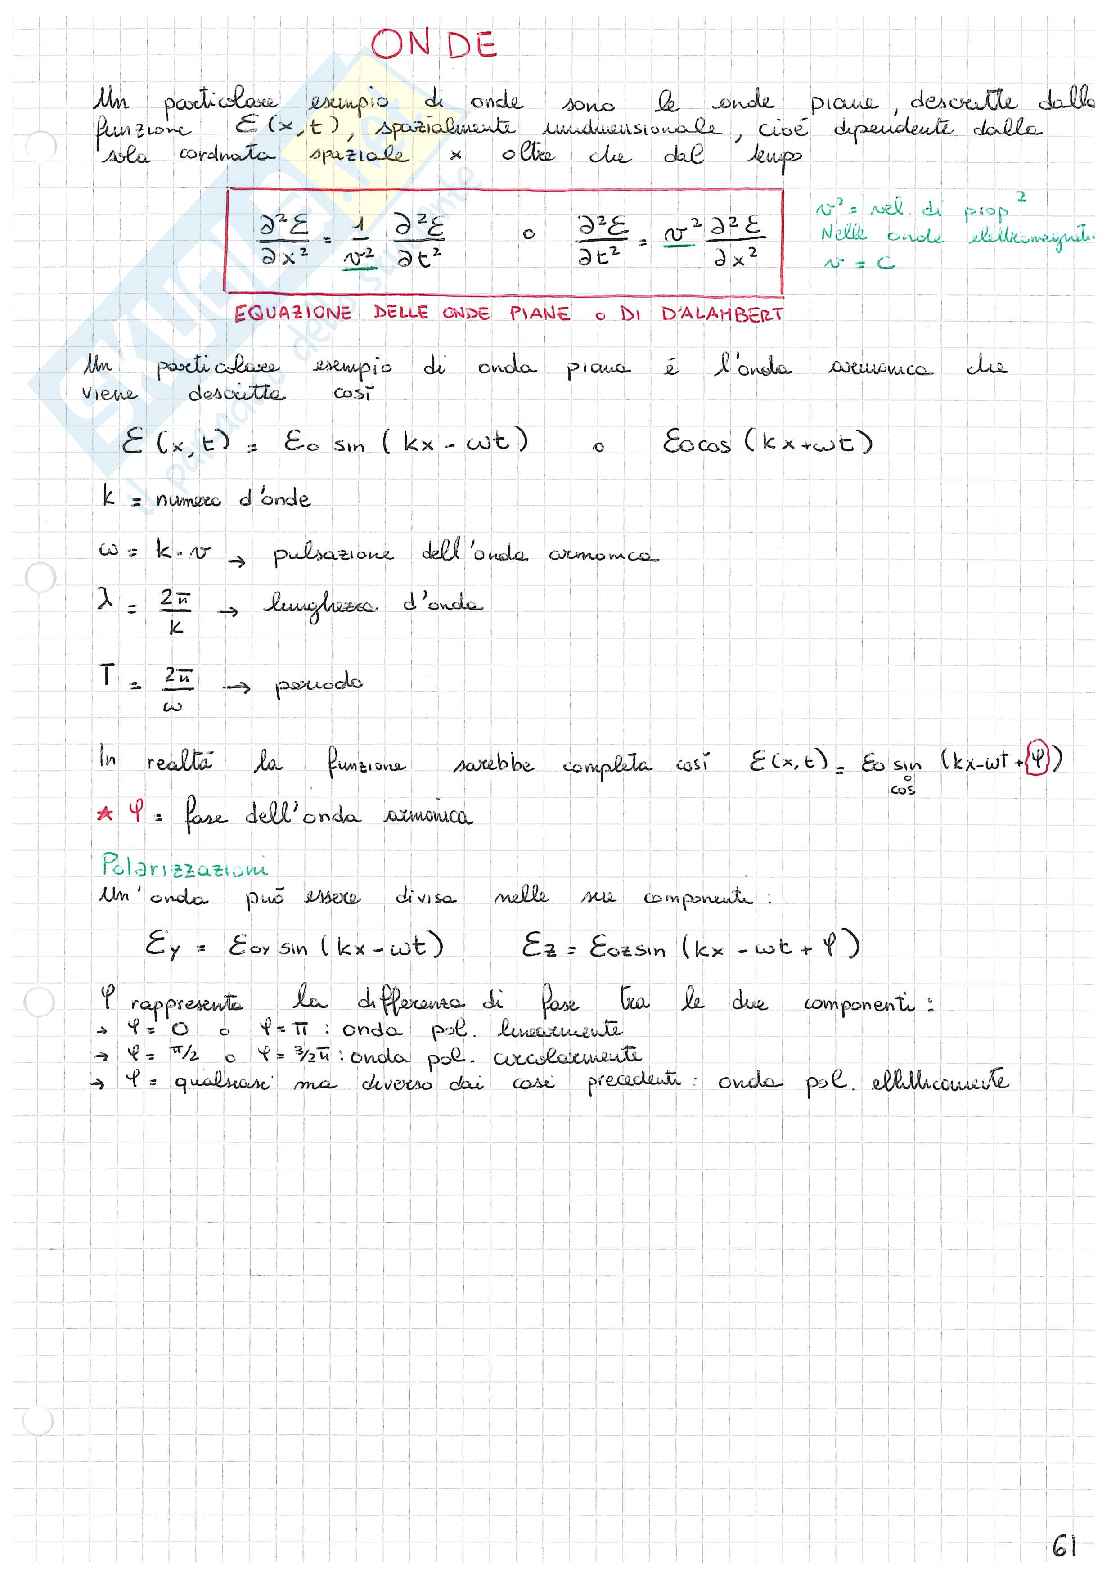 ONDE
Un particolare esempio di onde sono le onde piane, descritte dalla
funzione ℰ(x,t), spazialmente unidimensionale, cioé dipendente dalla
sola cordinata spaziale x oltre che dal tempo
∂²ℰ/∂x² = 1/v² ∂²ℰ/∂t² o ∂²ℰ/∂t² = v² ∂²ℰ/∂x²
v² = vel. di prop²
Nelle onde elettromagnet.
v = c
EQUAZIONE DELLE ONDE PIANE o DI D'ALAMBERT
Un particolare esempio di onda piana é l'onda armonica che
viene descritta così
ℰ(x,t) = ℰ0 sin (kx - ωt) o ℰ0 cos (kx+ωt)
k = numero d'onde
ω = k · v → pulsazione dell'onda armonica
λ = 2π/k → lunghezza d'onda
T = 2π/ω → periodo
In realtà la funzione sarebbe completa così ℰ(x,t) = ℰ0 sin (kx-ωt + φ)
o
cos
★ φ = fase dell'onda armonica
Polarizzazioni
Un'onda può essere divisa nelle sue componenti:
ℰy = ℰ0y sin (kx - ωt) ℰz = ℰ0z sin (kx - ωt + φ)
φ rappresenta la differenza di fase tra le due componenti:
→ φ = 0 o φ = π : onda pol. linearmente
→ φ = π/2 o φ = 3/2π : onda pol. circolarmente
→ φ = qualsiasi ma diverso dai casi precedenti: onda pol. ellitticamente
61